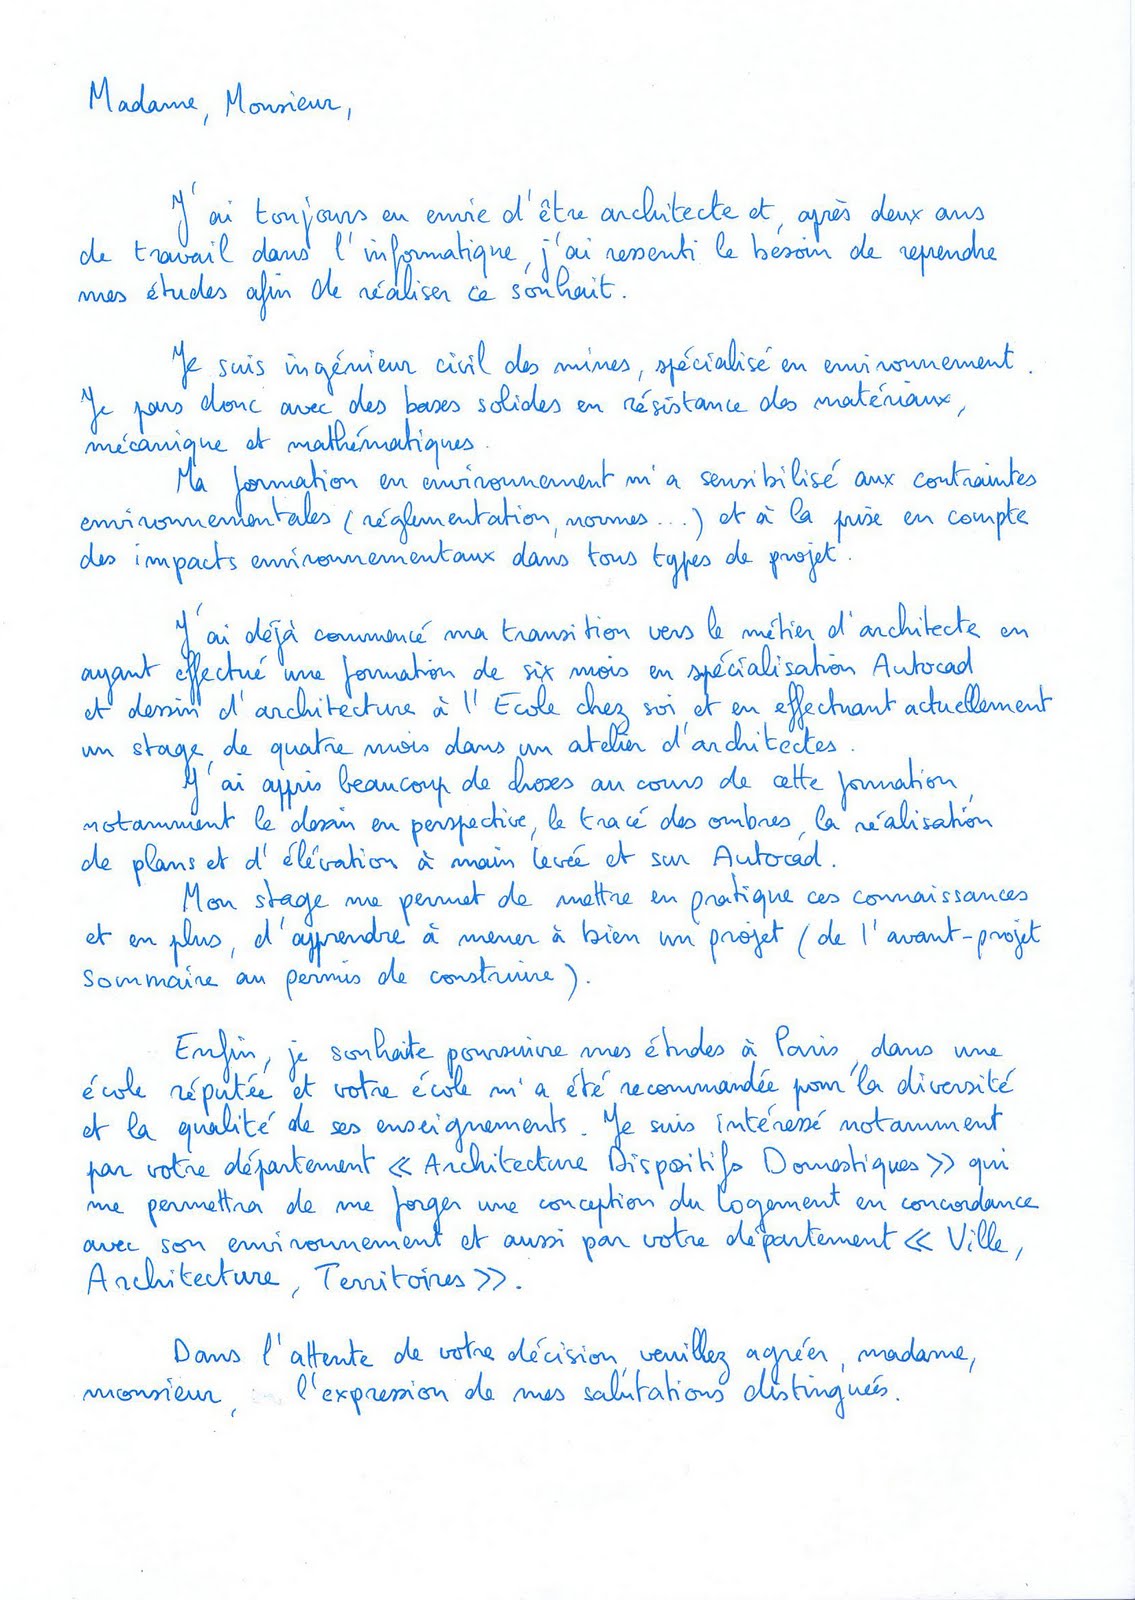 Madame, Monsieur,
J'ai toujours eu envie d'être architecte et, après deux ans
de travail dans l'informatique, j'ai ressenti le besoin de reprendre
mes études afin de réaliser ce souhait.
Je suis ingénieur civil des mines, spécialisé en environnement.
Je pars donc avec des bases solides en résistance des matériaux,
mécanique et mathématiques.
Ma formation en environnement m'a sensibilisé aux contraintes
environnementales (réglementation, normes...) et à la prise en compte
des impacts environnementaux dans tous types de projet.
J'ai déjà commencé ma transition vers le métier d'architecte en
ayant effectué une formation de six mois en spécialisation Autocad
et dessin d'architecture à l'Ecole chez soi et en effectuant actuellement
un stage de quatre mois dans un atelier d'architectes.
J'ai appris beaucoup de choses au cours de cette formation,
notamment le dessin en perspective, le tracé des ombres, la réalisation
de plans et d'élévation à main levée et sur Autocad.
Mon stage me permet de mettre en pratique ces connaissances
et en plus, d'apprendre à mener à bien un projet (de l'avant-projet
sommaire au permis de construire).
Enfin, je souhaite poursuivre mes études à Paris, dans une
école réputée et votre école m'a été recommandée pour la diversité
et la qualité de ses enseignements. Je suis intéressé notamment
par votre département << Architecture Dispositifs Domestiques >> qui
me permettra de me forger une conception du logement en concordance
avec son environnement et aussi par votre département << Ville,
Architecture, Territoires >>.
Dans l'attente de votre décision, veuillez agréer, madame,
monsieur, l'expression de mes salutations distinguées.